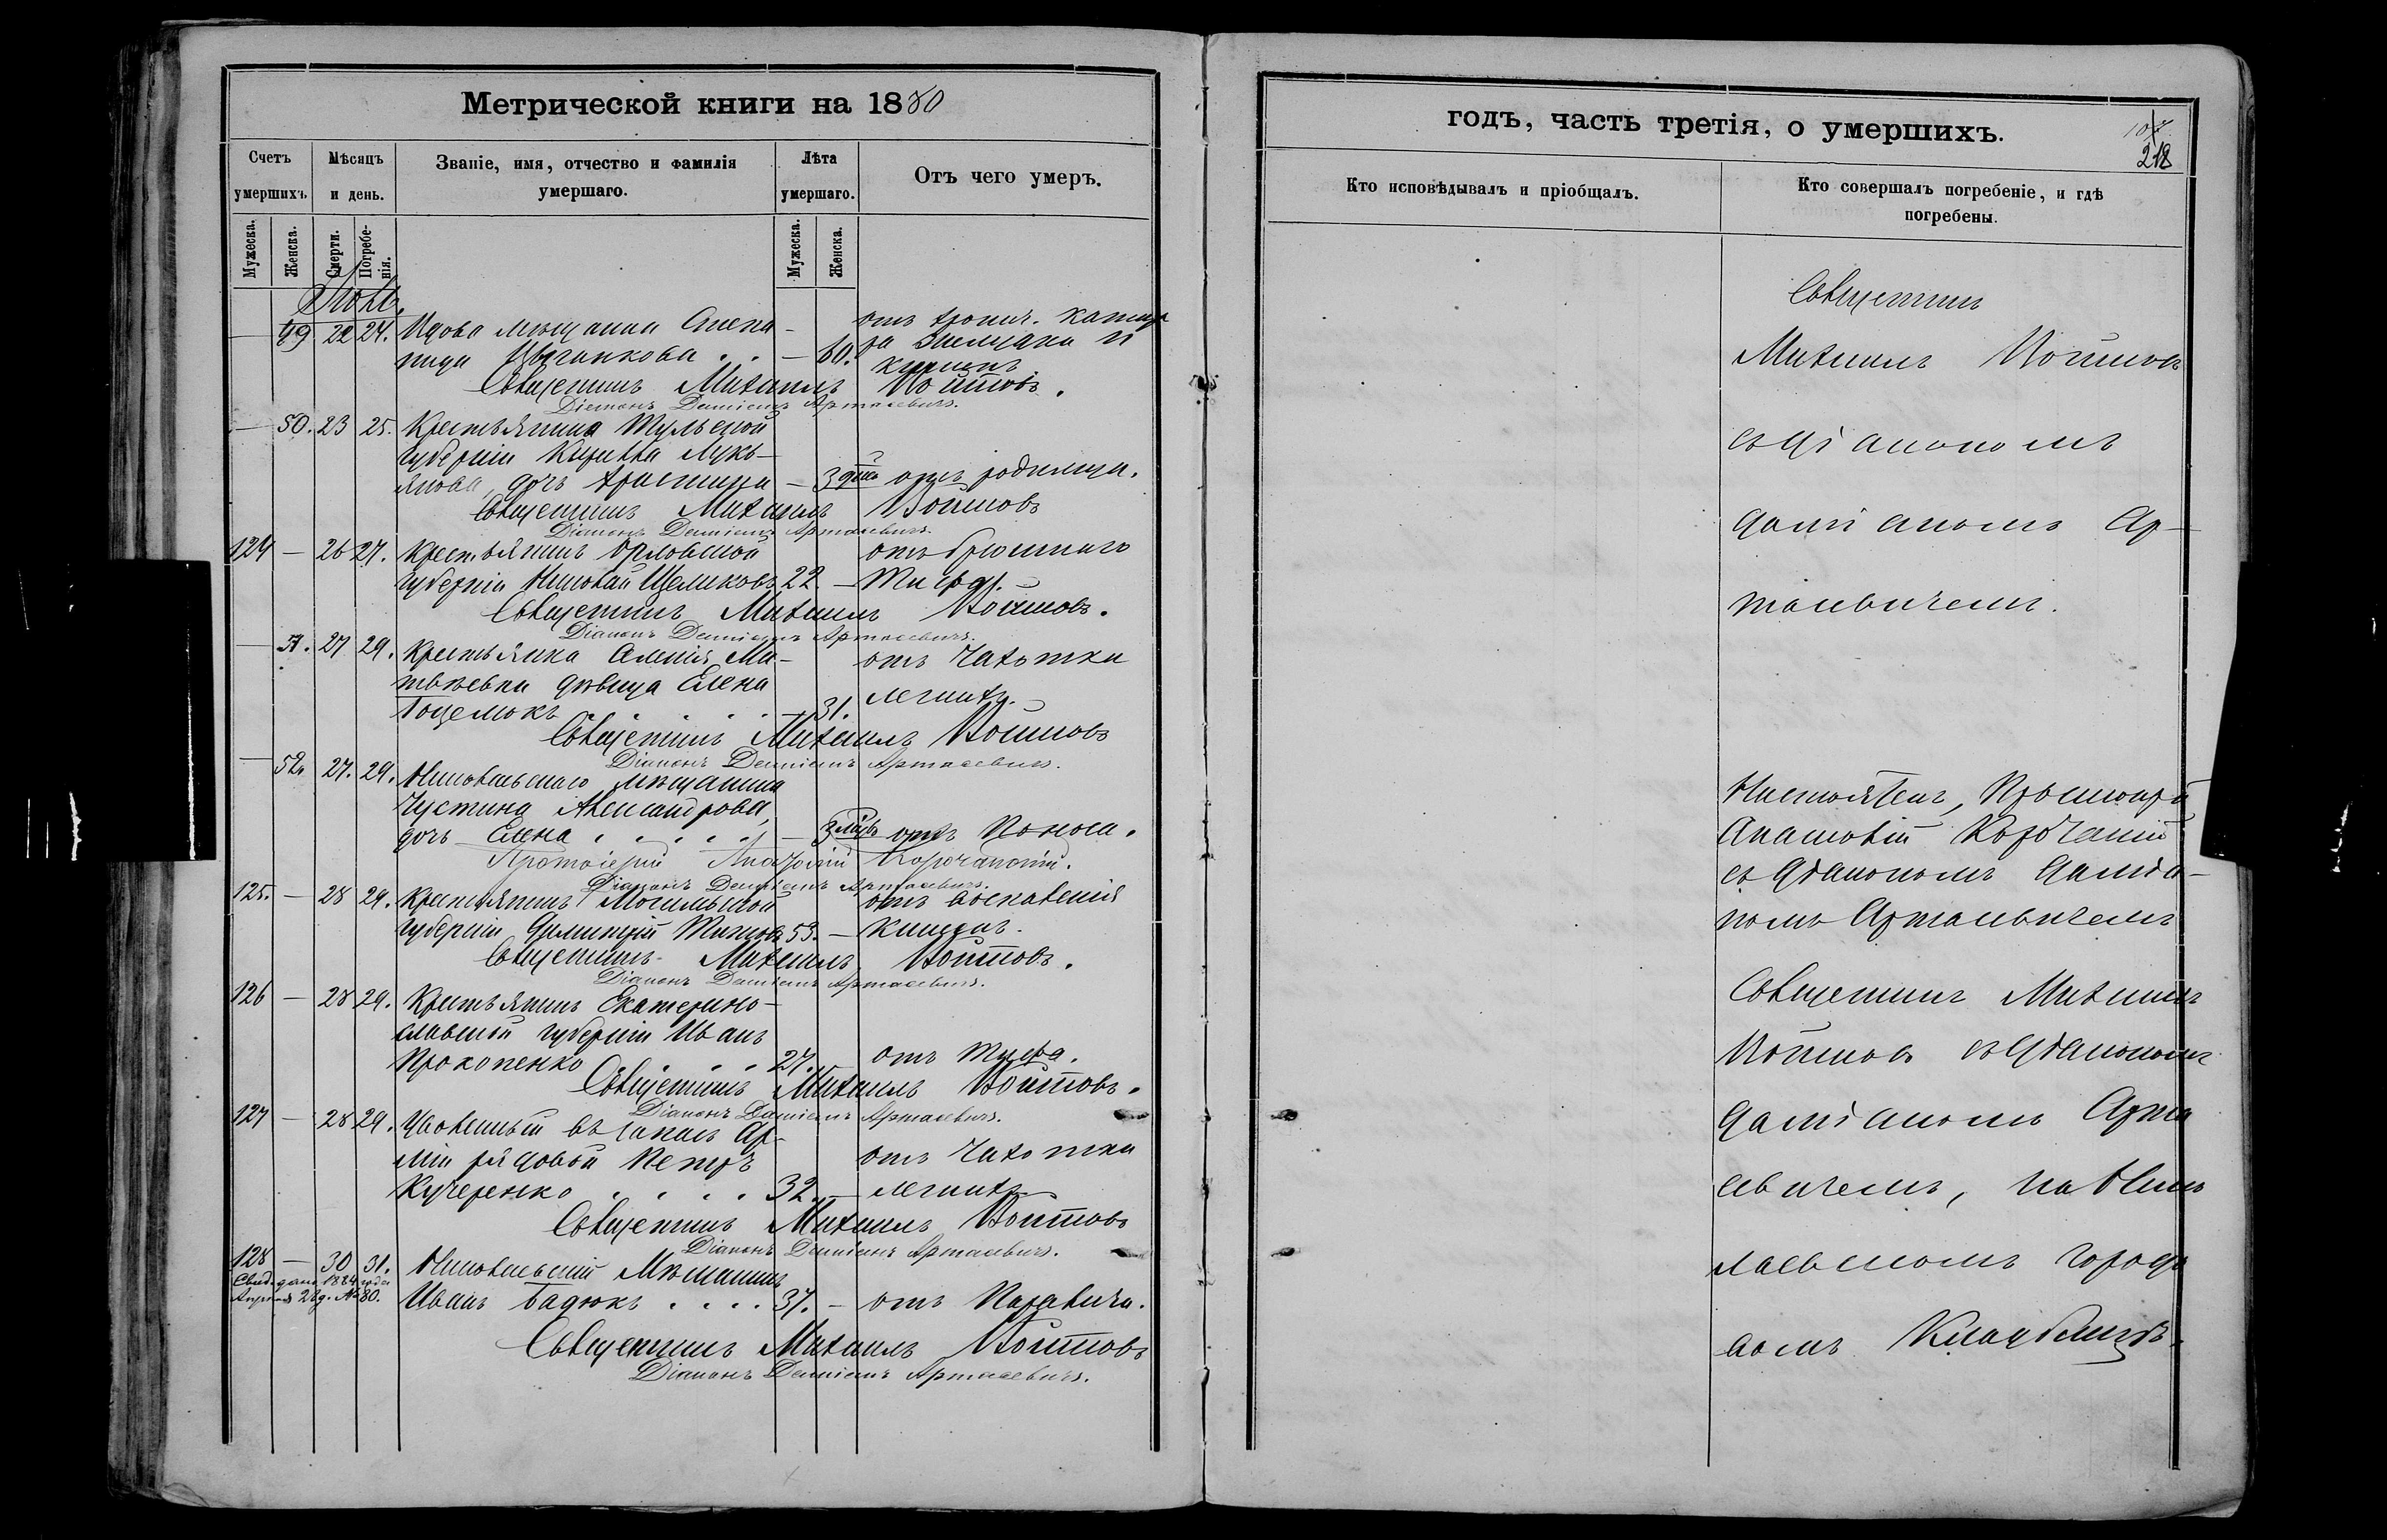 Метрической книги на 1880
Счетъ умершихъ.
Мѣсяцъ и день.
Званіе, имя, отчество и фамилія умершаго.
Лѣта умершаго.
Отъ чего умеръ.
Мужеска.
Женска.
Смерти.
Погребенія.
Мужеска.
Женска.
— 49 22 24. Вдова мѣщанка
Цыганкова . . — 60.
желудка и
кишекъ
Священникъ Михаилъ Войтовъ.
Діаконъ Даміанъ Артасевичъ.
— 50. 23 25. Крестьянина Тульской
губерніи Лукь-
янова, дочь Христина — 3 дня отъ родимца.
Священникъ Михаилъ Войтовъ
Діаконъ Даміанъ Артасевичъ.
124 — 26 27. Крестьянинъ Орловской отъ брюшнаго
губерніи Николай Щеликовъ 22. — Тифа.
Священникъ Михаилъ Войтовъ.
Діаконъ Даміанъ Артасевичъ.
— 51. 27 29. Крестьянка отъ чахотки
дѣвица Елена
— 31. легкихъ.
Священникъ Михаилъ Войтовъ
Діаконъ Даміанъ Артасевичъ.
— 52. 27. 29. Николаевскаго мѣщанина
Устина Александрова,
дочь Елена . . . . — 3 мѣс. отъ поноса.
Протоіерей Анатолій Корчинскій.
Діаконъ Даміанъ Артасевичъ.
125. — 28 29. Крестьянинъ Могилевской отъ воспаленія
губерніи Димитрій Титовъ 53. — кишекъ.
Священникъ Михаилъ Войтовъ.
Діаконъ Даміанъ Артасевичъ.
126 — 28 29. Крестьянинъ Екатерино-
славской губерніи Иванъ
Прокопенко . . . 27. отъ тифа.
Священникъ Михаилъ Войтовъ.
Діаконъ Даміанъ Артасевичъ.
127 — 28 29. Уволенный въ запасъ Ар-
міи рядовой Петръ отъ чахотки
Кучеренко . . . . 32. — легкихъ
Священникъ Михаилъ Войтовъ
Діаконъ Даміанъ Артасевичъ.
128 — 30 31. Николаевскій Мѣщанинъ
Свид. дано 1884 года
Апрѣля 28 д. № 80.
Иванъ Бадюкъ . . . . 37. — отъ Паралича.
Священникъ Михаилъ Войтовъ
Діаконъ Даміанъ Артасевичъ.
годъ, часть третія, о умершихъ.
218
Кто исповѣдывалъ и пріобщалъ.
Кто совершалъ погребеніе, и гдѣ погребены.
Священникъ
Михаилъ Войтовъ
съ діакономъ
Даміаномъ Ар-
тасевичемъ.
Настоятель, Протоіерей
Анатолій Корчинскій
съ Діакономъ Даміа-
номъ Артасевичемъ
Священникъ Михаилъ
Войтовъ съ Діакономъ
Даміаномъ Арта
севичемъ, на Нико
лаевскомъ город
скомъ Кладбищѣ.